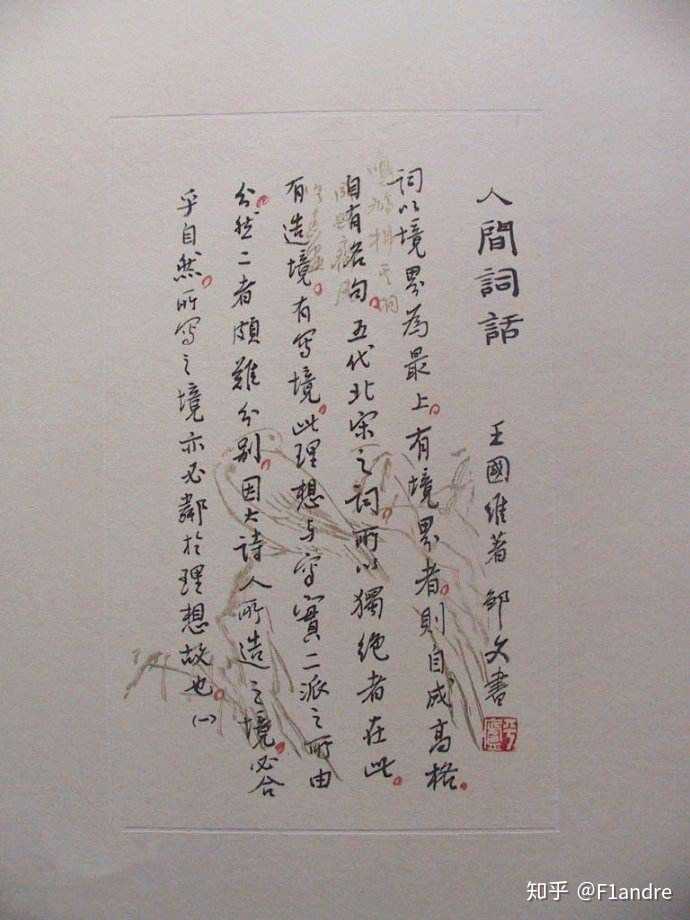 人間詞話 王國維著 邹文書
词以境界為最上。有境界者。則自成高格。
自有名句。五代北宋之词。所以獨絕者在此。
有造境。有写境。此理想与写實二派之所由
分。然二者頗難分别。因大詩人所造之境。必合
乎自然。所写之境亦必鄰於理想故也。(一)
知乎 @F1andre